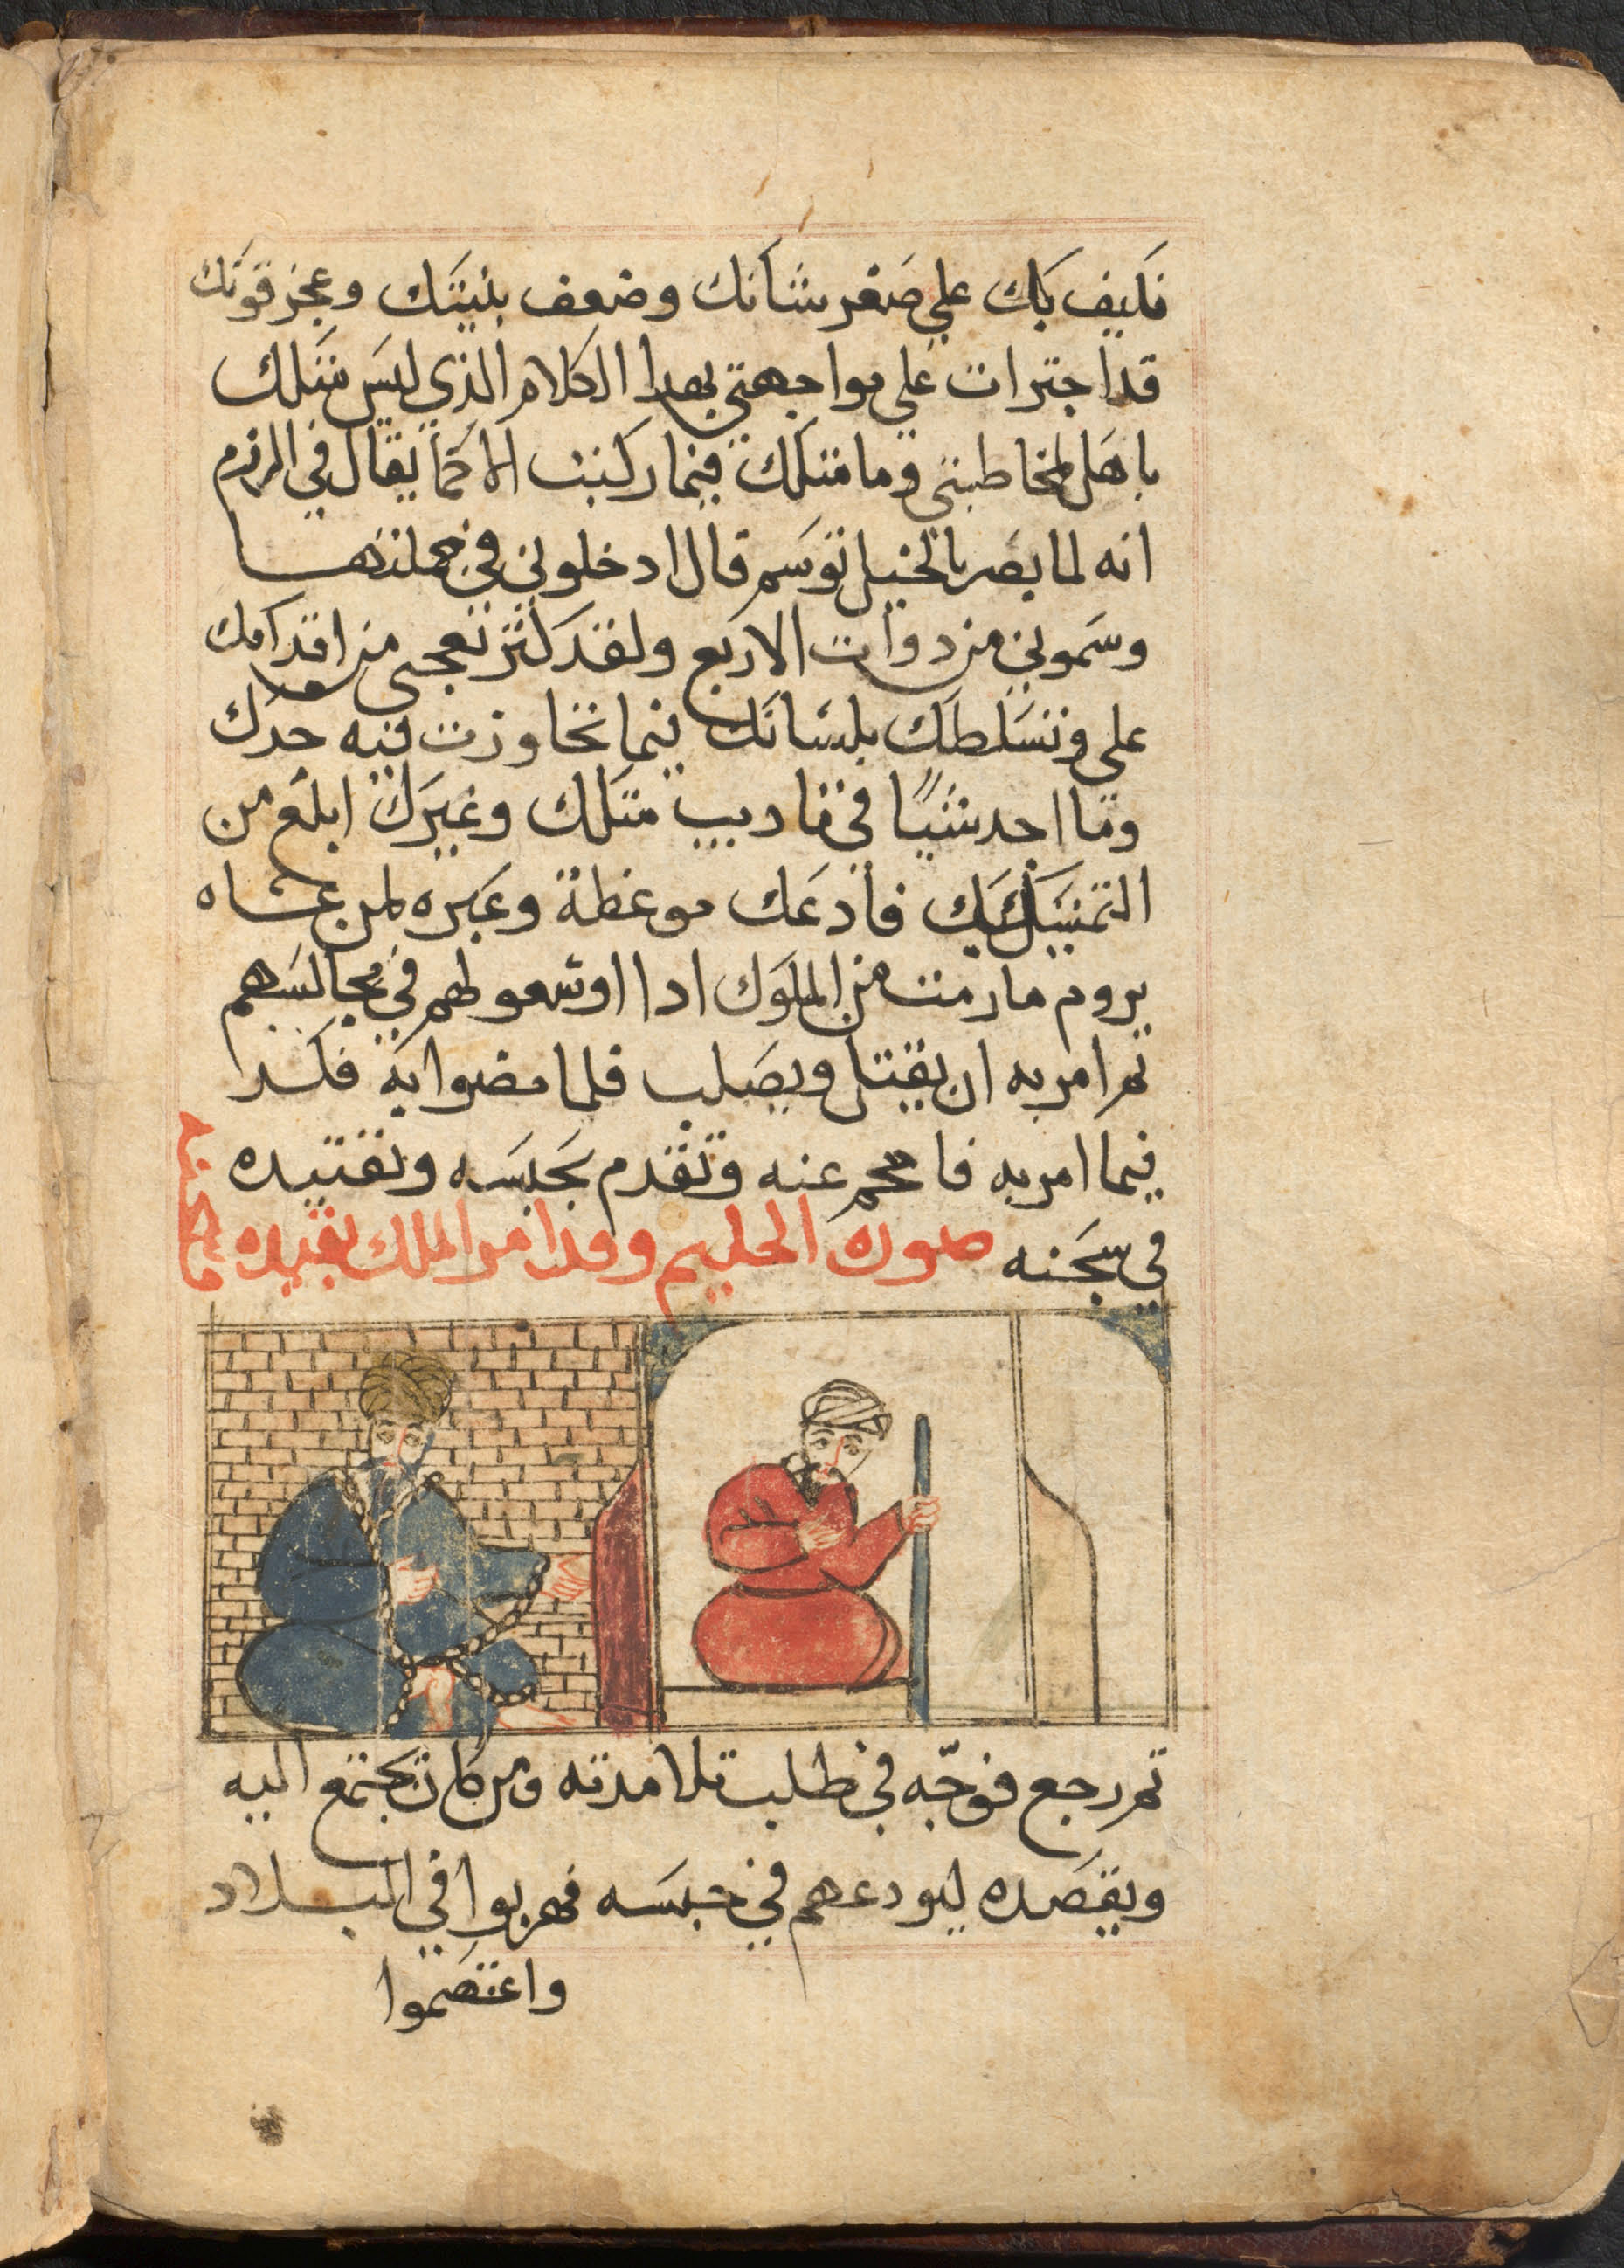 فكيف بك علي صغر شانك وضعف بنيتك وعجز قوتك
قد اجترات علي مواجهتي بهدا الكلام الذي ليس مثلك
باهل لمخاطبتي وما مثلك فيما ركبت الا كما يقال في
انه لما بصر بالخيل توسم قال ادخلوني في جملتها
وسموني من دوات الاربع ولقد كثر تعجبي من اقدامك
علي وتسلطك بلسانك فيما تجاوزت فيه حدك
وما اجد شيًا في تاديب مثلك وغيرك ابلغ من
التمتيل بك فادعك موعظة وعبره لمن عساه
يروم ما رمت من الملوك ادا اوسعوا لهم في مجالسهم
تم امر به ان يقتل ويصلب فلما مضوا به فكر
فيما امر به فاحجم عنه وتقدم بحبسه وتقييده
في سجنه صورة الحليم وقد امر الملك بقيده
تم رجع فوجّه في طلب تلامدته ومن كان يجتمع اليه
ويقصده ليودعهم في حبسه فهربوا في البلاد
واعتصموا